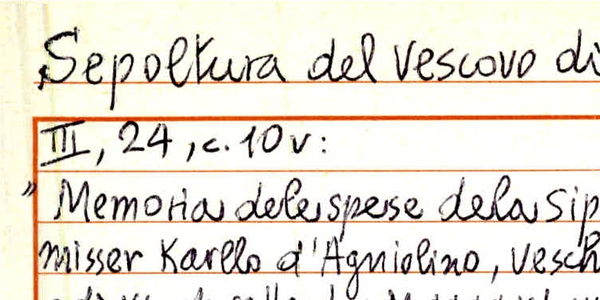 Sepoltura del vescovo di
III, 24, c. 10 v:
" Memoria dele spese dela Sip
misser Karllo d'Agniolino, Vesch